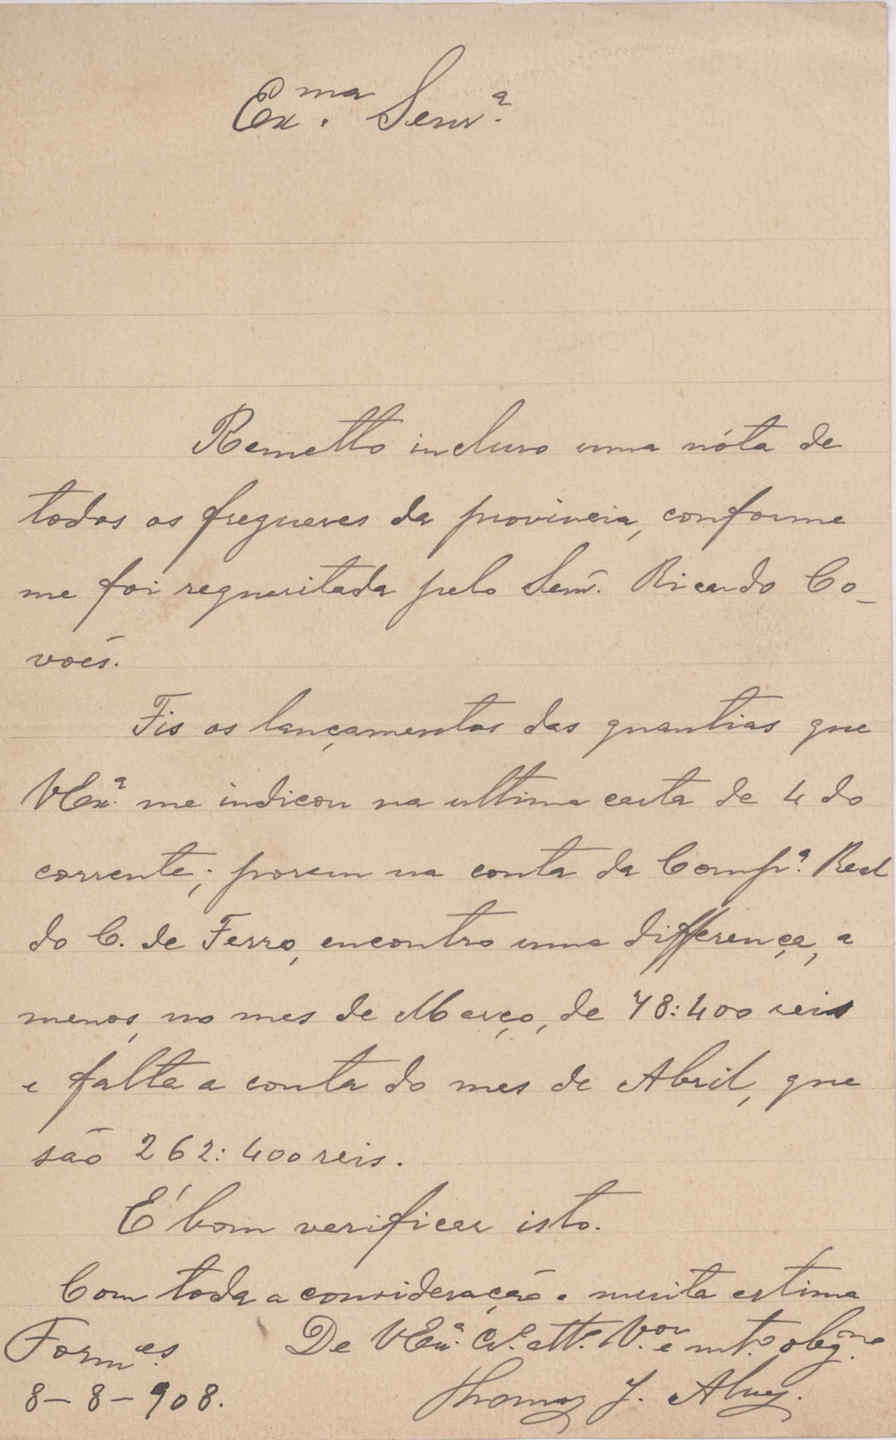 Ex.ma Senr.a
Remetto incluso uma nóta de
todos os freguezes da provincia, conforme
me foi requesitada pelo Senr. Ricardo Co-
voẽs.
Fis os lançamentos das quantias que
VEx.a me indicou na ultima carta de 4 do
corrente; porem na conta da Comp.a Real
do C. de Ferro, encontro uma differença, a
menos, no mes de Março, de 78:400 reis
e falta a conta do mes de Abril, que
são 262:400 reis.
É bom verificar isto.
Com toda a consideração e muita estima
De VEx.a Cr.o att.o V.or e mt.o obg.mo
Form.es
8-8-908.
Thomaz J. Alves.